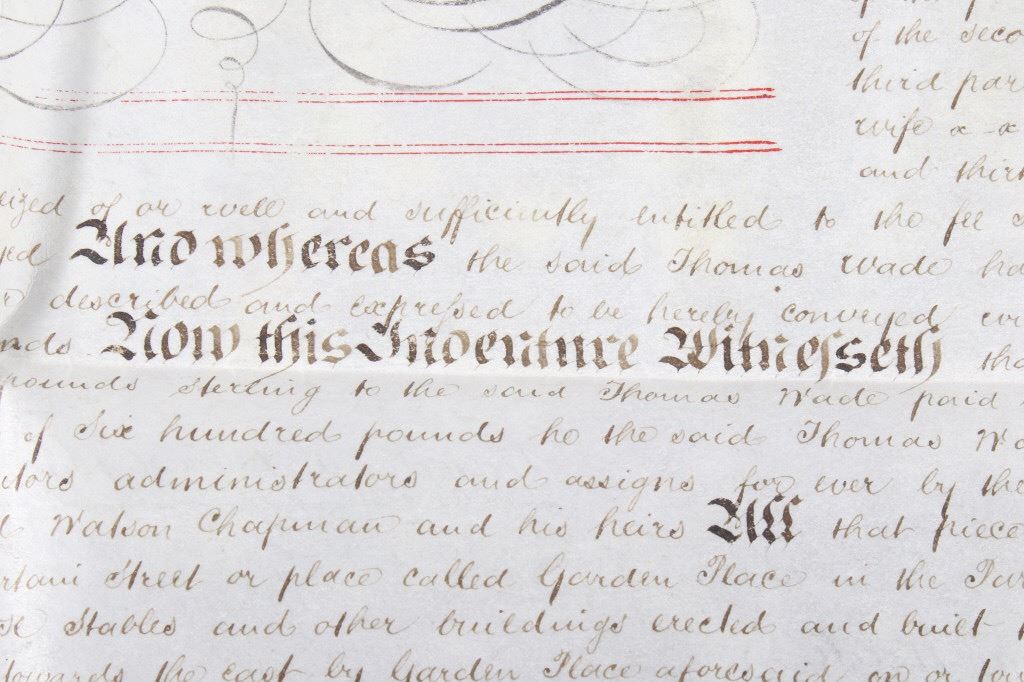 of the seco
third par
wife
and thirt
eized of or well and sufficiently entitled to the fee s
And whereas the said Thomas Wade ha
described and expressed to be hereby conveyed
nds Now this Indenture Witnesseth tha
pounds sterling to the said Thomas Wade paid
of Six hundred pounds he the said Thomas Wa
utors administrators and assigns for ever by the
d Watson Chapman and his heirs All that piece
rtain Street or place called Garden Place in the Par
se Stables and other buildings erected and built
towards the east by Garden Place aforesaid on or tow